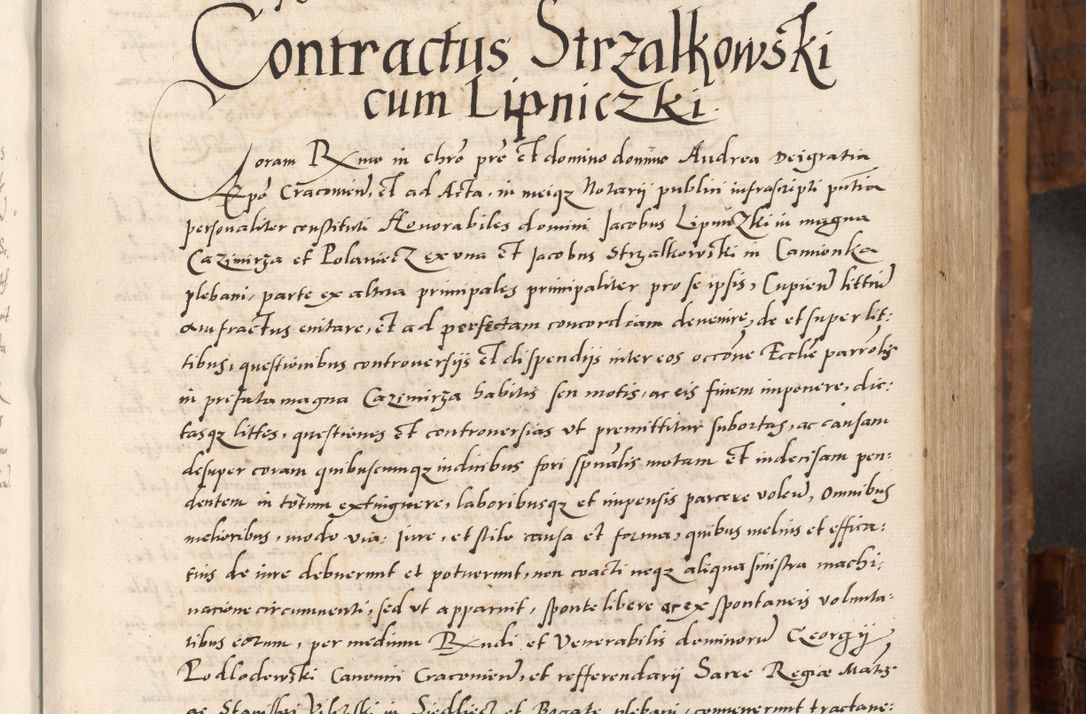 Contractus Strzalkowski
cum Lipniczki
Coram Rmo in chro pre et domino domino Andrea Deigratia
Epo Cracovien, et ad Acta, in meiqz Notarij publici infrascripti pntia
personaliter constituti Honorabiles domini Jacobus Lipniczki in magna
Cazimirza et Polaniecz ex una et Jacobus Strzalkowski in Camionka
plebani, parte ex altera principales principaliter pro se ipsis, Cupien littiu
anfractus evitare, et ad perfectam concordiam devenire, de et super lit:
tibus, questionibus controversijs et dispendijs inter eos occone Ecclie parrolis
in prefata magna Cazimirza habitis seu motis, ac eis finem imponere, dic:
tasqz littes, questiones et controversias ut premittitur subortas, ac causam
desuper coram quibuscumqz iudicibus fori spualis motam et indecisam pen:
dentem in totum extinguere, laboribusqz et impensis parcere volen, Omnibus
melioribus, modo via: jure, et stilo causa et forma, quibus melius et effica:
tius de iure debuerunt et potuerunt, non coacti neqz aliqua sinistra machi:
nacione circumventi, sed ut apparuit, sponte libere ac ex spontaneis volunta:
tibus eorum, per medium Rndi et Venerabilis dominoru Georgij
Podlodowski Canonici Cracovien, et refferendarij Sacre Regiae Mattis
ac Stanislai in Siedliecz et Bogate plebani, convenerunt tractave: